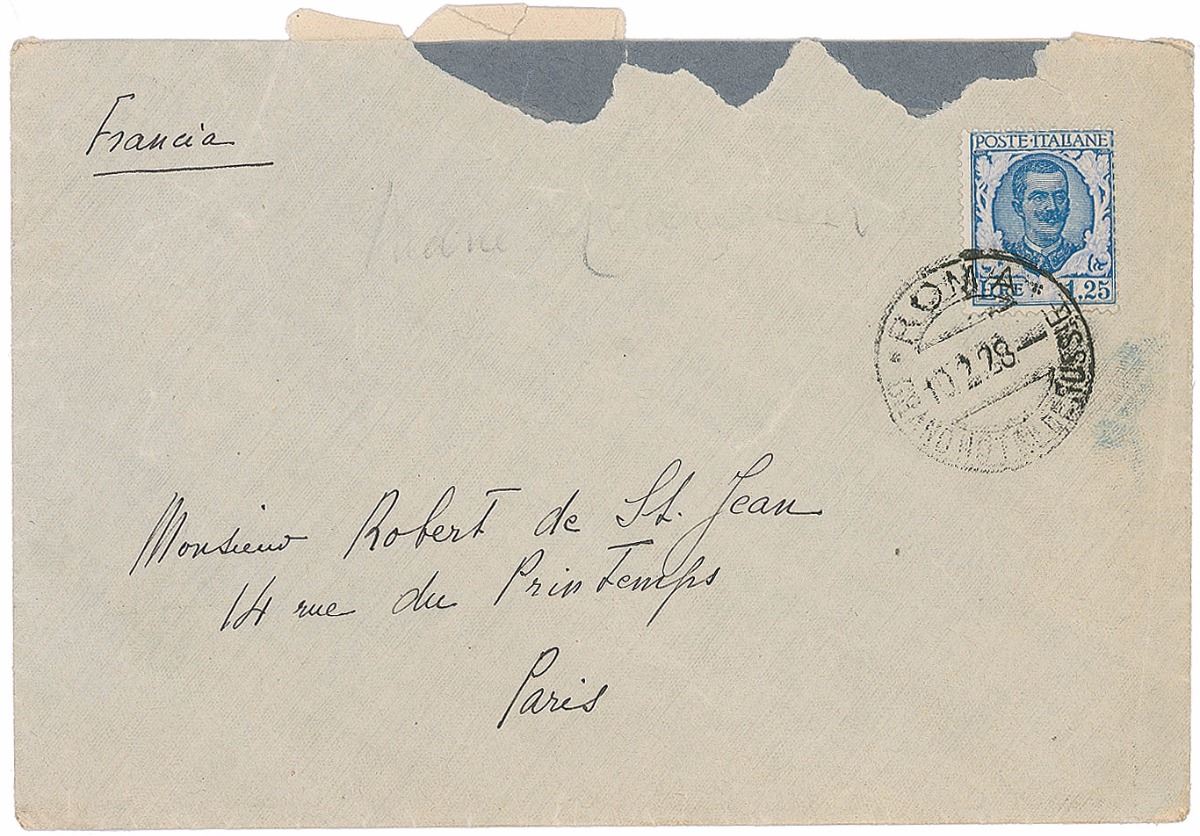 Francia
POSTE·ITALIANE
LIRE 1,25
ROMA
10.2.28
Monsieur Robert de St. Jean
14 rue du Printemps
Paris